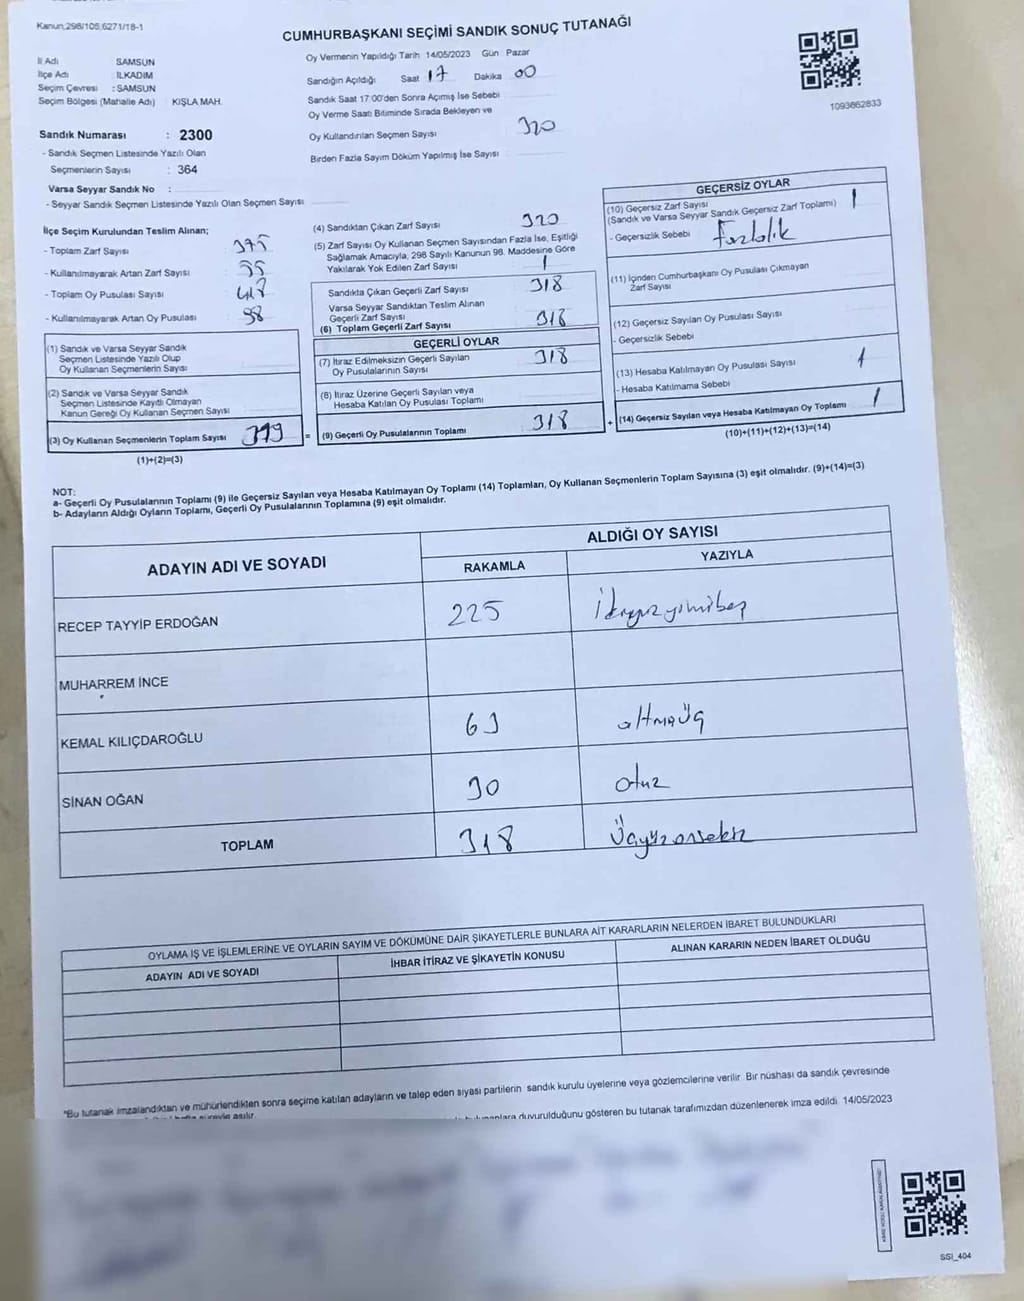 Kanun,298/105,6271/18-1
CUMHURBAŞKANI SEÇİMİ SANDIK SONUÇ TUTANAĞI
İl Adı SAMSUN
İlçe Adı : İLKADIM
Seçim Çevresi : SAMSUN
Seçim Bölgesi (Mahalle Adı) KIŞLA MAH.
Sandık Numarası : 2300
- Sandık Seçmen Listesinde Yazılı Olan
Seçmenlerin Sayısı : 364
Varsa Seyyar Sandık No :
- Seyyar Sandık Seçmen Listesinde Yazılı Olan Seçmen Sayısı
Oy Vermenin Yapıldığı Tarih 14/05/2023 Gün Pazar
Sandığın Açıldığı Saat 17 Dakika 00
Sandık Saat 17:00'den Sonra Açımış İse Sebebi
Oy Verme Saati Bitiminde Sırada Bekleyen ve
Oy Kullandırılan Seçmen Sayısı 320
Birden Fazla Sayım Döküm Yapılmış İse Sayısı
1093662833
İlçe Seçim Kurulundan Teslim Alınan;
- Toplam Zarf Sayısı 375
- Kullanılmayarak Artan Zarf Sayısı 55
- Toplam Oy Pusulası Sayısı
- Kullanılmayarak Artan Oy Pusulası 98
(1) Sandık ve Varsa Seyyar Sandık
Seçmen Listesinde Yazılı Olup
Oy Kullanan Seçmenlerin Sayısı
(2) Sandık ve Varsa Seyyar Sandık
Seçmen Listesinde Kayıtlı Olmayan
Kanun Gereği Oy Kullanan Seçmen Sayısı
(3) Oy Kullanan Seçmenlerin Toplam Sayısı 319
(1)+(2)=(3)
(4) Sandıktan Çıkan Zarf Sayısı 320
(5) Zarf Sayısı Oy Kullanan Seçmen Sayısından Fazla İse, Eşitliği
Sağlamak Amacıyla, 298 Sayılı Kanunun 98. Maddesine Göre
Yakılarak Yok Edilen Zarf Sayısı 1
Sandıkta Çıkan Geçerli Zarf Sayısı 318
Varsa Seyyar Sandıktan Teslim Alınan
Geçerli Zarf Sayısı
(6) Toplam Geçerli Zarf Sayısı 318
GEÇERLİ OYLAR
(7) İtiraz Edilmeksizin Geçerli Sayılan
Oy Pusulalarının Sayısı 318
(8) İtiraz Üzerine Geçerli Sayılan veya
Hesaba Katılan Oy Pusulası Toplamı
= (9) Geçerli Oy Pusulalarının Toplamı 318
GEÇERSİZ OYLAR
(10) Geçersiz Zarf Sayısı 1
(Sandık ve Varsa Seyyar Sandık Geçersiz Zarf Toplamı)
- Geçersizlik Sebebi Fazlalık
(11) İçinden Cumhurbaşkanı Oy Pusulası Çıkmayan
Zarf Sayısı
(12) Geçersiz Sayılan Oy Pusulası Sayısı
- Geçersizlik Sebebi
(13) Hesaba Katılmayan Oy Pusulası Sayısı 1
- Hesaba Katılmama Sebebi
+ (14) Geçersiz Sayılan veya Hesaba Katılmayan Oy Toplamı 1
(10)+(11)+(12)+(13)=(14)
NOT:
a- Geçerli Oy Pusulalarının Toplamı (9) ile Geçersiz Sayılan veya Hesaba Katılmayan Oy Toplamı (14) Toplamları, Oy Kullanan Seçmenlerin Toplam Sayısına (3) eşit olmalıdır. (9)+(14)=(3)
b- Adayların Aldığı Oyların Toplamı, Geçerli Oy Pusulalarının Toplamına (9) eşit olmalıdır.
ADAYIN ADI VE SOYADI ALDIĞI OY SAYISI
RAKAMLA YAZIYLA
RECEP TAYYİP ERDOĞAN 225 ikiyüzyirmibeş
MUHARREM İNCE
KEMAL KILIÇDAROĞLU 63 altmışüç
SİNAN OĞAN 30 otuz
TOPLAM 318 Üçyüzonsekiz
OYLAMA İŞ VE İŞLEMLERİNE VE OYLARIN SAYIM VE DÖKÜMÜNE DAİR ŞİKAYETLERLE BUNLARA AİT KARARLARIN NELERDEN İBARET BULUNDUKLARI
ADAYIN ADI VE SOYADI İHBAR İTİRAZ VE ŞİKAYETİN KONUSU ALINAN KARARIN NEDEN İBARET OLDUĞU
"Bu tutanak imzalandıktan ve mühürlendikten sonra seçime katılan adayların ve talep eden siyasi partilerin sandık kurulu üyelerine veya gözlemcilerine verilir. Bir nüshası da sandık çevresinde
duyurulduğunu gösteren bu tutanak tarafımızdan düzenlenerek imza edildi. 14/05/2023
SSİ_404